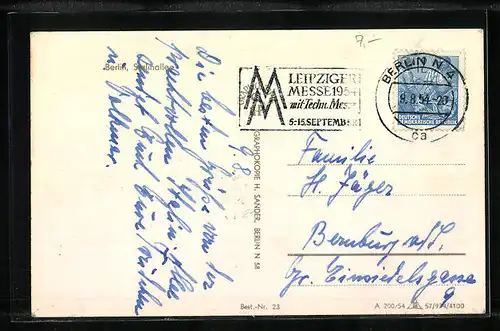 7,-
Berlin, Stalinallee
9.8.
Die besten Grüße von der
prachtvollen Stalin Allee
sendet Euch Eure
u.
LEIPZIGER
MESSE 1954
mit Techn. Messe
5.-15. SEPTEMBER
BERLIN N 4
9.8.54-20
ca
DEUTSCHE
DEMOKRATISCHE REPUBLIK
GRAPHOKOPIE H. SANDER, BERLIN N 58
Familie
H. Jäger
Bernburg a/S.
Gr. Einsiedelsgasse
9
Best.-Nr. 23
A 200/54 57/974/4100